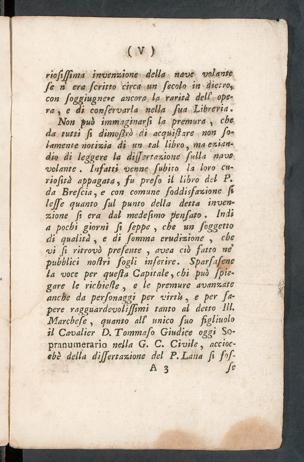 ( V )
riosissima invenzione della nave volante
se n' era scritto circa un secolo in dietro,
con soggiugnere ancora la rarità dell' ope-
ra, e di conservarla nella sua Libreria.
Non può immaginarsi la premura, che
da tutti si dimostrò di acquistare non so-
lamente notizia di un tal libro, ma ezian-
dio di leggere la dissertazione sulla nave
volante. Infatti venne subito la loro cu-
riosità appagata, fu preso il libro del P.
da Brescia, e con comune soddisfazione si
lesse quanto sul punto della detta inven-
zione si era dal medesimo pensato. Indi
a pochi giorni si seppe, che un soggetto
di qualità, e di somma erudizione, che
vi si ritrovò presente, avea ciò fatto ne'
pubblici nostri fogli inserire. Sparsasene
la voce per questa Capitale, chi può spie-
gare le richieste, e le premure avanzate
anche da personaggi per virtù, e per sa-
pere ragguardevolissimi tanto al detto Ill.
Marchese, quanto all' unico suo figliuolo
il Cavalier D. Tommaso Giudice oggi So-
pranumerario nella G. C. Civile, accioc-
chè della dissertazione del P. Lana si fos-
A 3 se